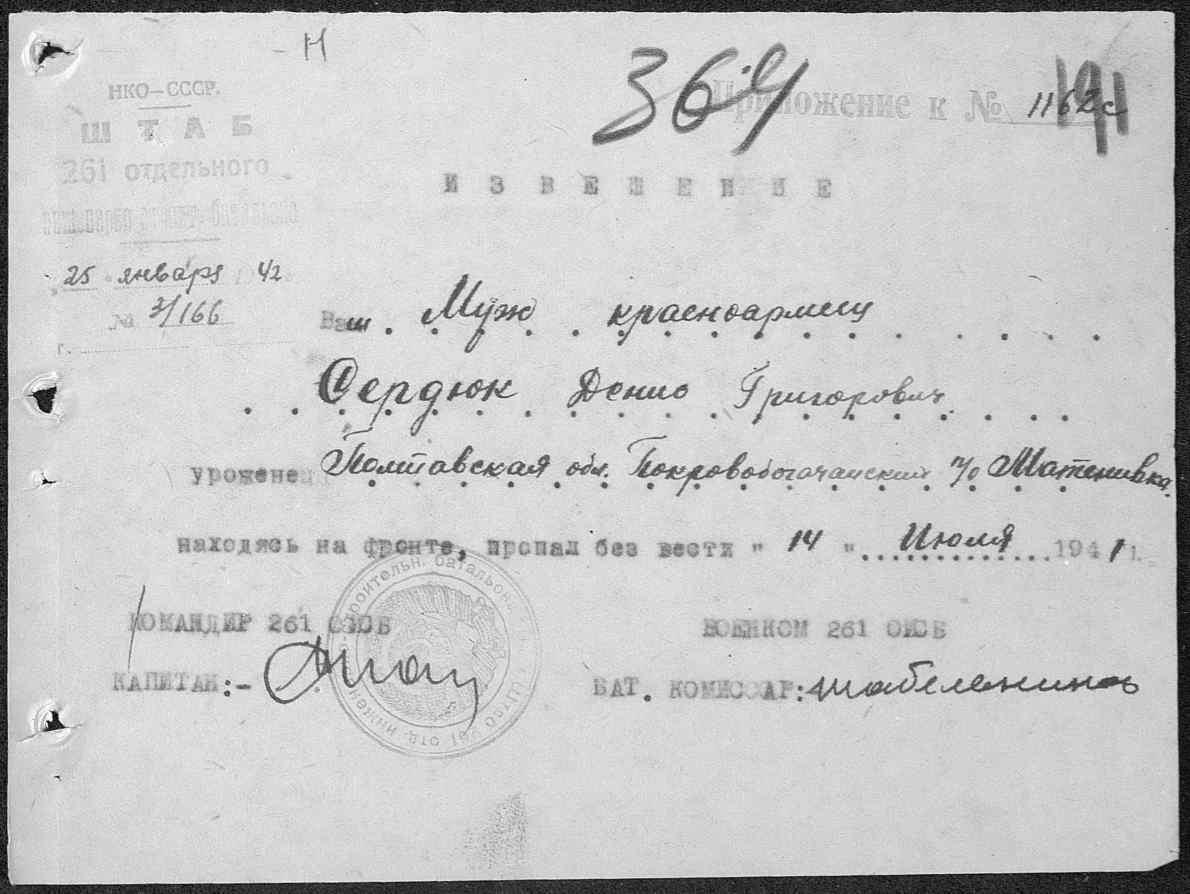 Н
НКО-СССР.
ШТАБ
261 отдельного
25 января 42
№ 3/166
г.
364
Приложение к № 1162с
ИЗВЕЩЕНИЕ
Ваш Муж красноармеец
Сердюк Денис Григорович
уроженец Полтавская обл. Покровобогачанский
находясь на фронте, пропал без вести "14" Июля 1941 г.
КОМАНДИР 261 ОИСБ
КАПИТАН:-
ВОЕНКОМ 261 ОИСБ
БАТ. КОМИССАР: